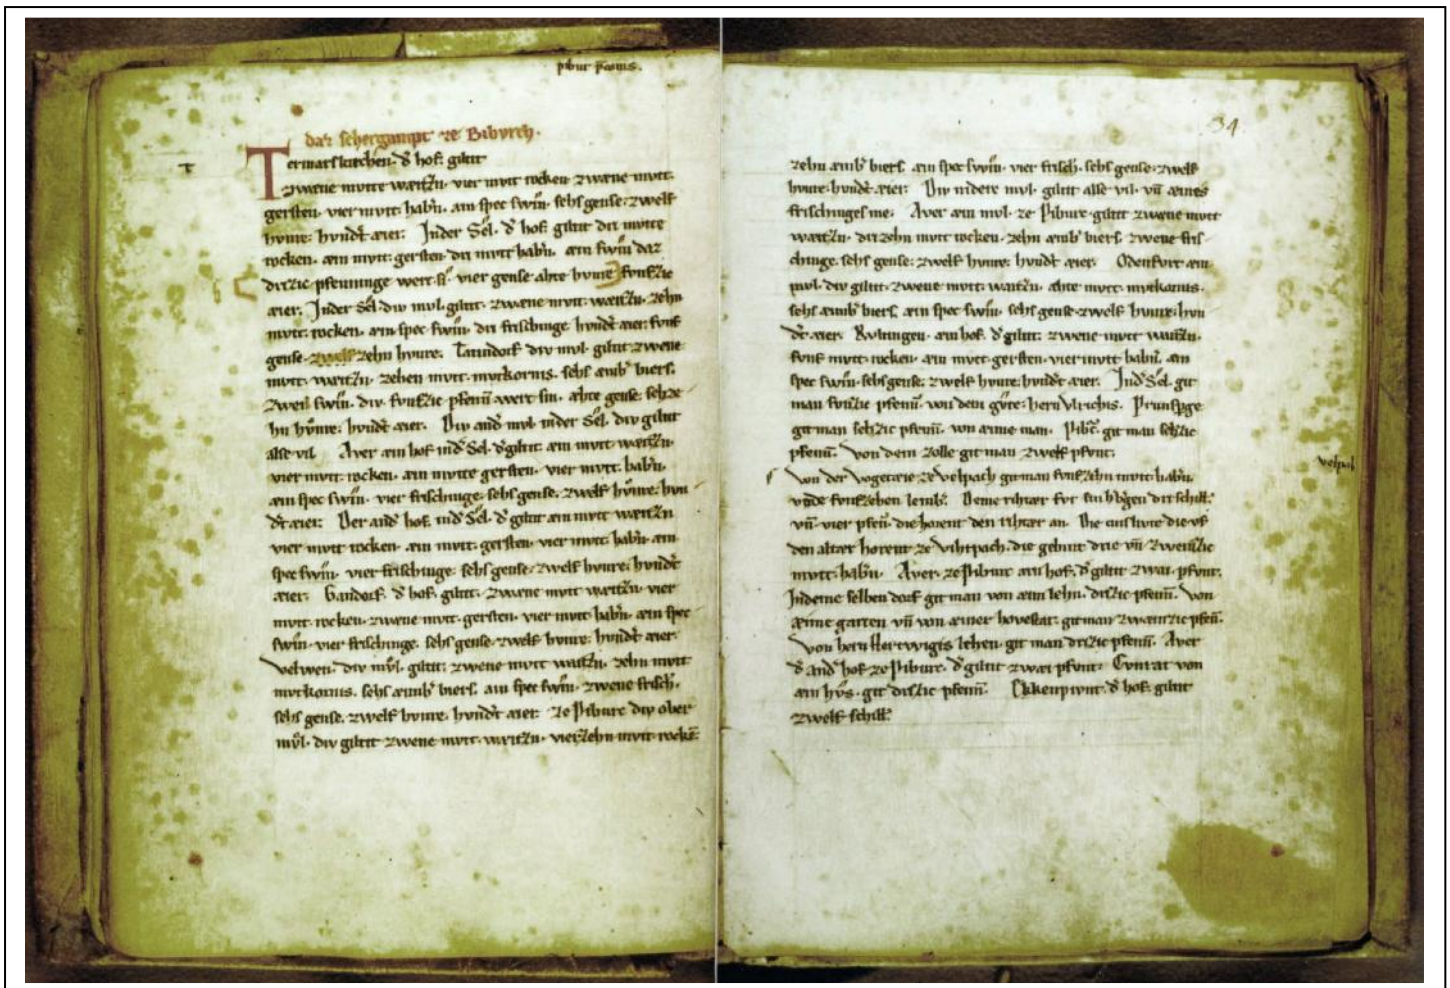 pibur
daz schergampt ze Bibvrch.
T
Termarskirchen. d̾ hof. giltit
zwene mvtte waitzn. vier mvtt rocken zwene mvtt.
gersten. vier mvtt. hab̾n. ain spec swin. sehs gense. zwelf
hvnre. hvnd̾t aier. Inder Sel. d̾ hof. giltit dri mvtte
rocken. ain mvtt. gersten. dri mvtt hab̾n. ain swin daz
drizic pfenninge wert si. vier gense ahte hvnre fvnfzic
aier. Inder Sel. div mvl. giltit. zwene mvtt. waitzn. zehn
mvtt. rocken. ain spec swin. dri frischinge hvnd̾t aier. fvnf
gense. zwelf zehn hvnre. div mvl. giltit zwene
mvtt. waitzn. zehen mvtt. mvtkornis. sehs aimb̾ biers.
zwei swin. div. fvnfzic pfenn̄ wert sin. ahte gense. sehze
hn hvnre. hvnd̾t aier. Div and̾ mvl inder Sel. div giltit
alse vil. Aver ain hof ind̾ Sel. d̾ giltit. ain mvtt. waitzn.
vier mvtt. rocken. ain mvtte gersten. vier mvtt. hab̾n.
ain spec swin. vier frischinge. sehs gense. zwelf hvnre. hvn
d̾t aier. Der and̾ hof. ind̾ Sel. d̾ giltit ain mvtt waitzn
vier mvtt rocken. ain mvtt. gersten. vier mvtt. hab̾n. ain
spec swin. vier frischinge. sehs gense. zwelf hvnre. hvnd̾t
aier. Gandorf. d̾ hof. giltit. zwene mvtt waitzn. vier
mvtt. rocken. zwene mvtt. gersten. vier mvtt hab̾n. ain spec
swin. vier frischinge. sehs gense. zwelf hvnre. hvnd̾t aier.
Velwen. div mvl. giltit. zwene mvtt waitzn. zehn mvtt
mvtkornis. sehs aimb̾ biers. ain spec swin. zwene frisch̾.
sehs gense. zwelf hvnre. hvnd̾t aier. ze Pibure div ober
mvl. div giltit zwene mvtt. waitzn. vierzehn mvtt. rockē
34
zehn aimb̾ biers. ain spec swin. vier frisch̾. sehs gense. zwelf
hvnre. hvnd̾t aier. Div nidere mvl. giltit alse vil. vn̄ aines
frischinges me. Aver ain mvl. ze Pibure. giltit zwene mvtt
waitzn. drizehn mvtt rocken. zehn aimb̾ biers. zwene fris
chinge. sehs gense. zwelf hvnre. hvnd̾t aier. Odenfort ain
mvl. div giltit. zwene mvtt. waitzn. ahte mvtt. mvtkornis.
sehs aimb̾ biers. ain spec swin. sehs gense. zwelf hvnre. hvn
d̾t aier. ain hof. d̾ giltit. zwene mvtt waitzn.
fvnf mvtt. rocken. ain mvtt. gersten. vier mvtt hab̾n. ain
spec swin. sehs gense. zwelf hvnre. hvnd̾t aier. Ind̾ Sel. git
man fvnfzic pfenn̄. von dem gvte. hern Vlrichis.
git man sehzic pfenn̄. von aime man. git man sehzic
pfenn̄. Von dem zolle git man zwelf pfvnt.
Von der vogetaie ze Velpach git man fvnfzehn mvtt hab̾n
vnde fvnfzehen lemb̾. Deme rihtær fvr sin dri schill̾.
vn̄ vier pfen̄. die horent den rihtær an. Die die vf
den altær horent ze Vihtpach. die gebint drie vn̄ zweinzic
mvtt. hab̾n. Aver. ze Pibure ain hof. d̾ giltit zwai. pfvnt.
Indeme selben dorf git man von aim lehn. drizic pfenn̄. Von
aime garten vn̄ von ainer hovestat. git man zwainzic pfen̄.
Von hern Hertwigis lehen. git man drizic pfenn̄. Aver
d̾ and̾ hof. ze Pibure. d̾ giltit zwai pfvnt. Cvnrat von
aim hvs. git drizic pfenn̄. d̾ hof. giltit
zwelf schill̾.